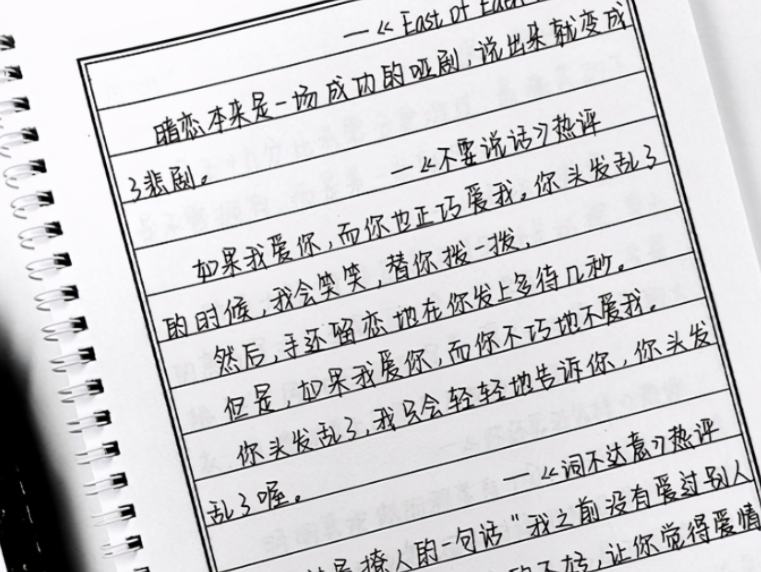 —《East of
暗恋本来是一场成功的哑剧,说出来就变成
了悲剧。 —《不要说话》热评
如果我爱你,而你也正巧爱我。你头发乱了
的时候,我会笑笑,替你拨一拨,
然后,手还留恋地在你发上多待几秒。
但是,如果我爱你,而你不巧地不爱我。
你头发乱了,我只会轻轻地告诉你,你头发
乱了喔。 —《词不达意》热评
撩人的一句话"我之前没有爱过别人
让你觉得爱情